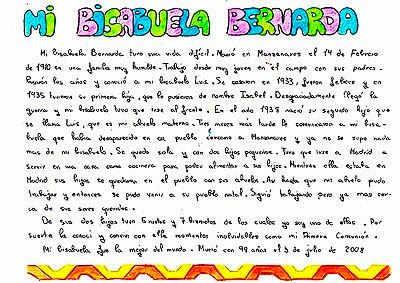 MI BISABUELA BERNARDA
Mi bisabuela Bernarda tuvo una vida difícil. Nació en Manzanares el 14 de Febrero
de 1910 en una familia muy humilde. Trabajó desde muy joven en el campo con sus padres.
Pasaron los años y conoció a mi bisabuelo Luis. Se casaron en 1933, fueron felices y en
1935 tuvieron su primera hija, que le pusieron de nombre Isabel. Desgraciadamente llegó la
guerra y mi bisabuelo tuvo que irse al frente. En el año 1938 nació su segundo hijo que
se llama Luis, que es mi abuelo materno. Tres meses más tarde le comunicaron a mi bisa-
buela que había desaparecido en un pueblo cercano a Manzanares y ya no se supo nada
mas de mi bisabuelo. Se quedo sola y con dos hijos pequeños. Tuvo que irse a Madrid a
servir en una casa como cocinera para poder alimentar a sus hijos. Mientras ella estaba en
Madrid sus hijos se quedaron en el pueblo con sus abuelos. Así hasta que mi abuelo pudo
trabajar y entonces se pudo venir a su pueblo natal. Siguió trabajando pero ya mas cer-
ca de sus seres queridos.
De sus dos hijos tuvo 5 nietos y 7 bisnietos de los cuales yo soy uno de ellos. Por
suerte la conocí y conviví con ella momentos inolvidables como mi Primera Comunión.
Mi bisabuela fue la mejor del mundo. Murió con 98 años el 3 de julio de 2008